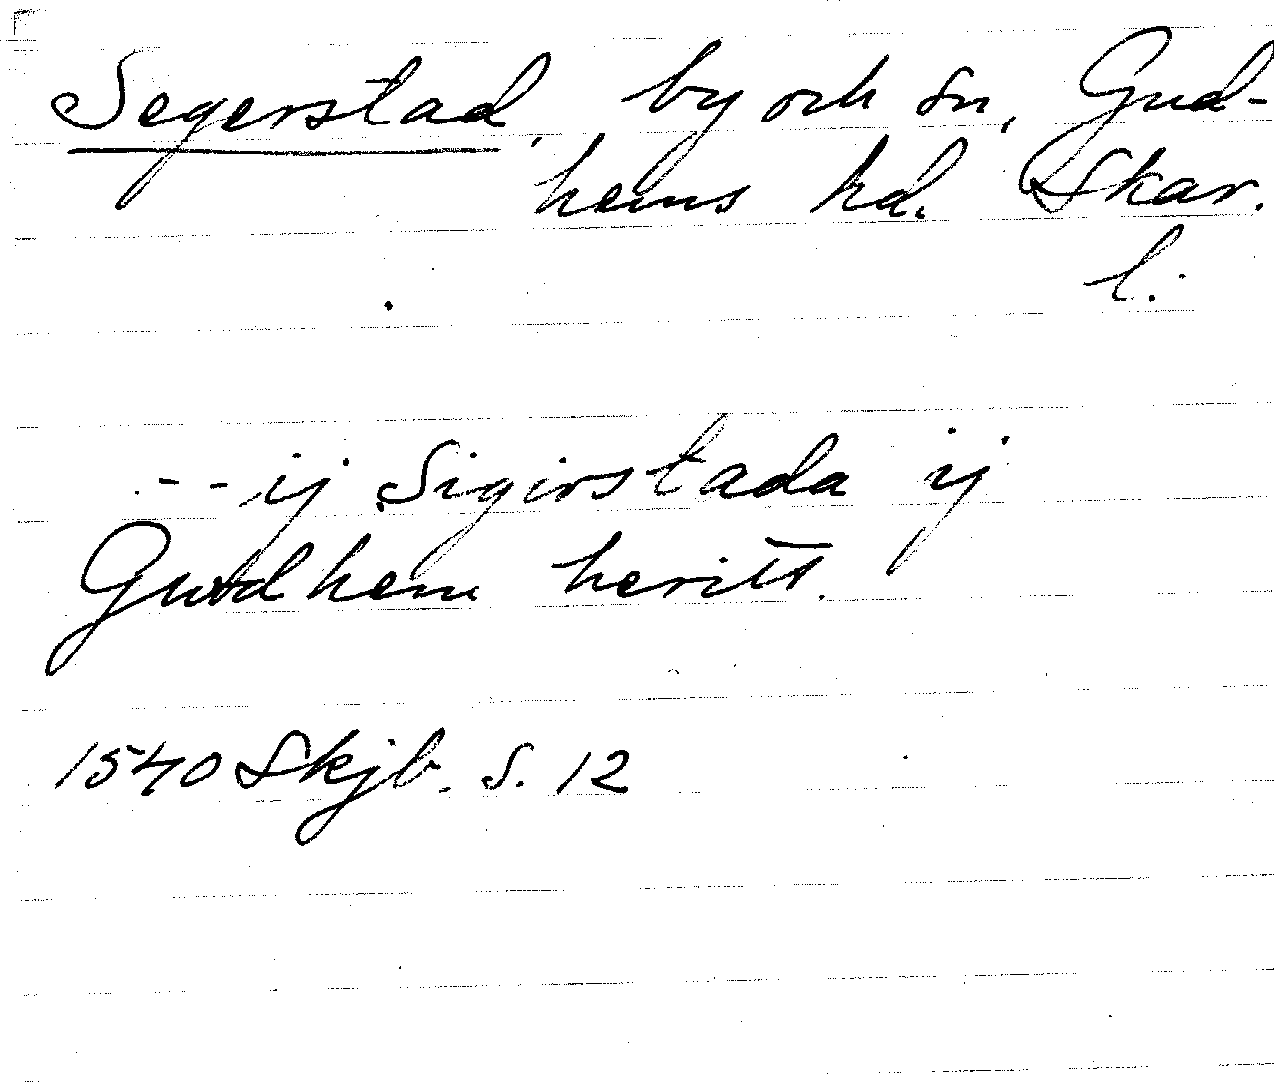 Segerstad, by och sn, Gud-
hems hd. Skar.
l.
-- ij Sigirstada ij
Gudhem heritt.
1540 Skjb. S. 12